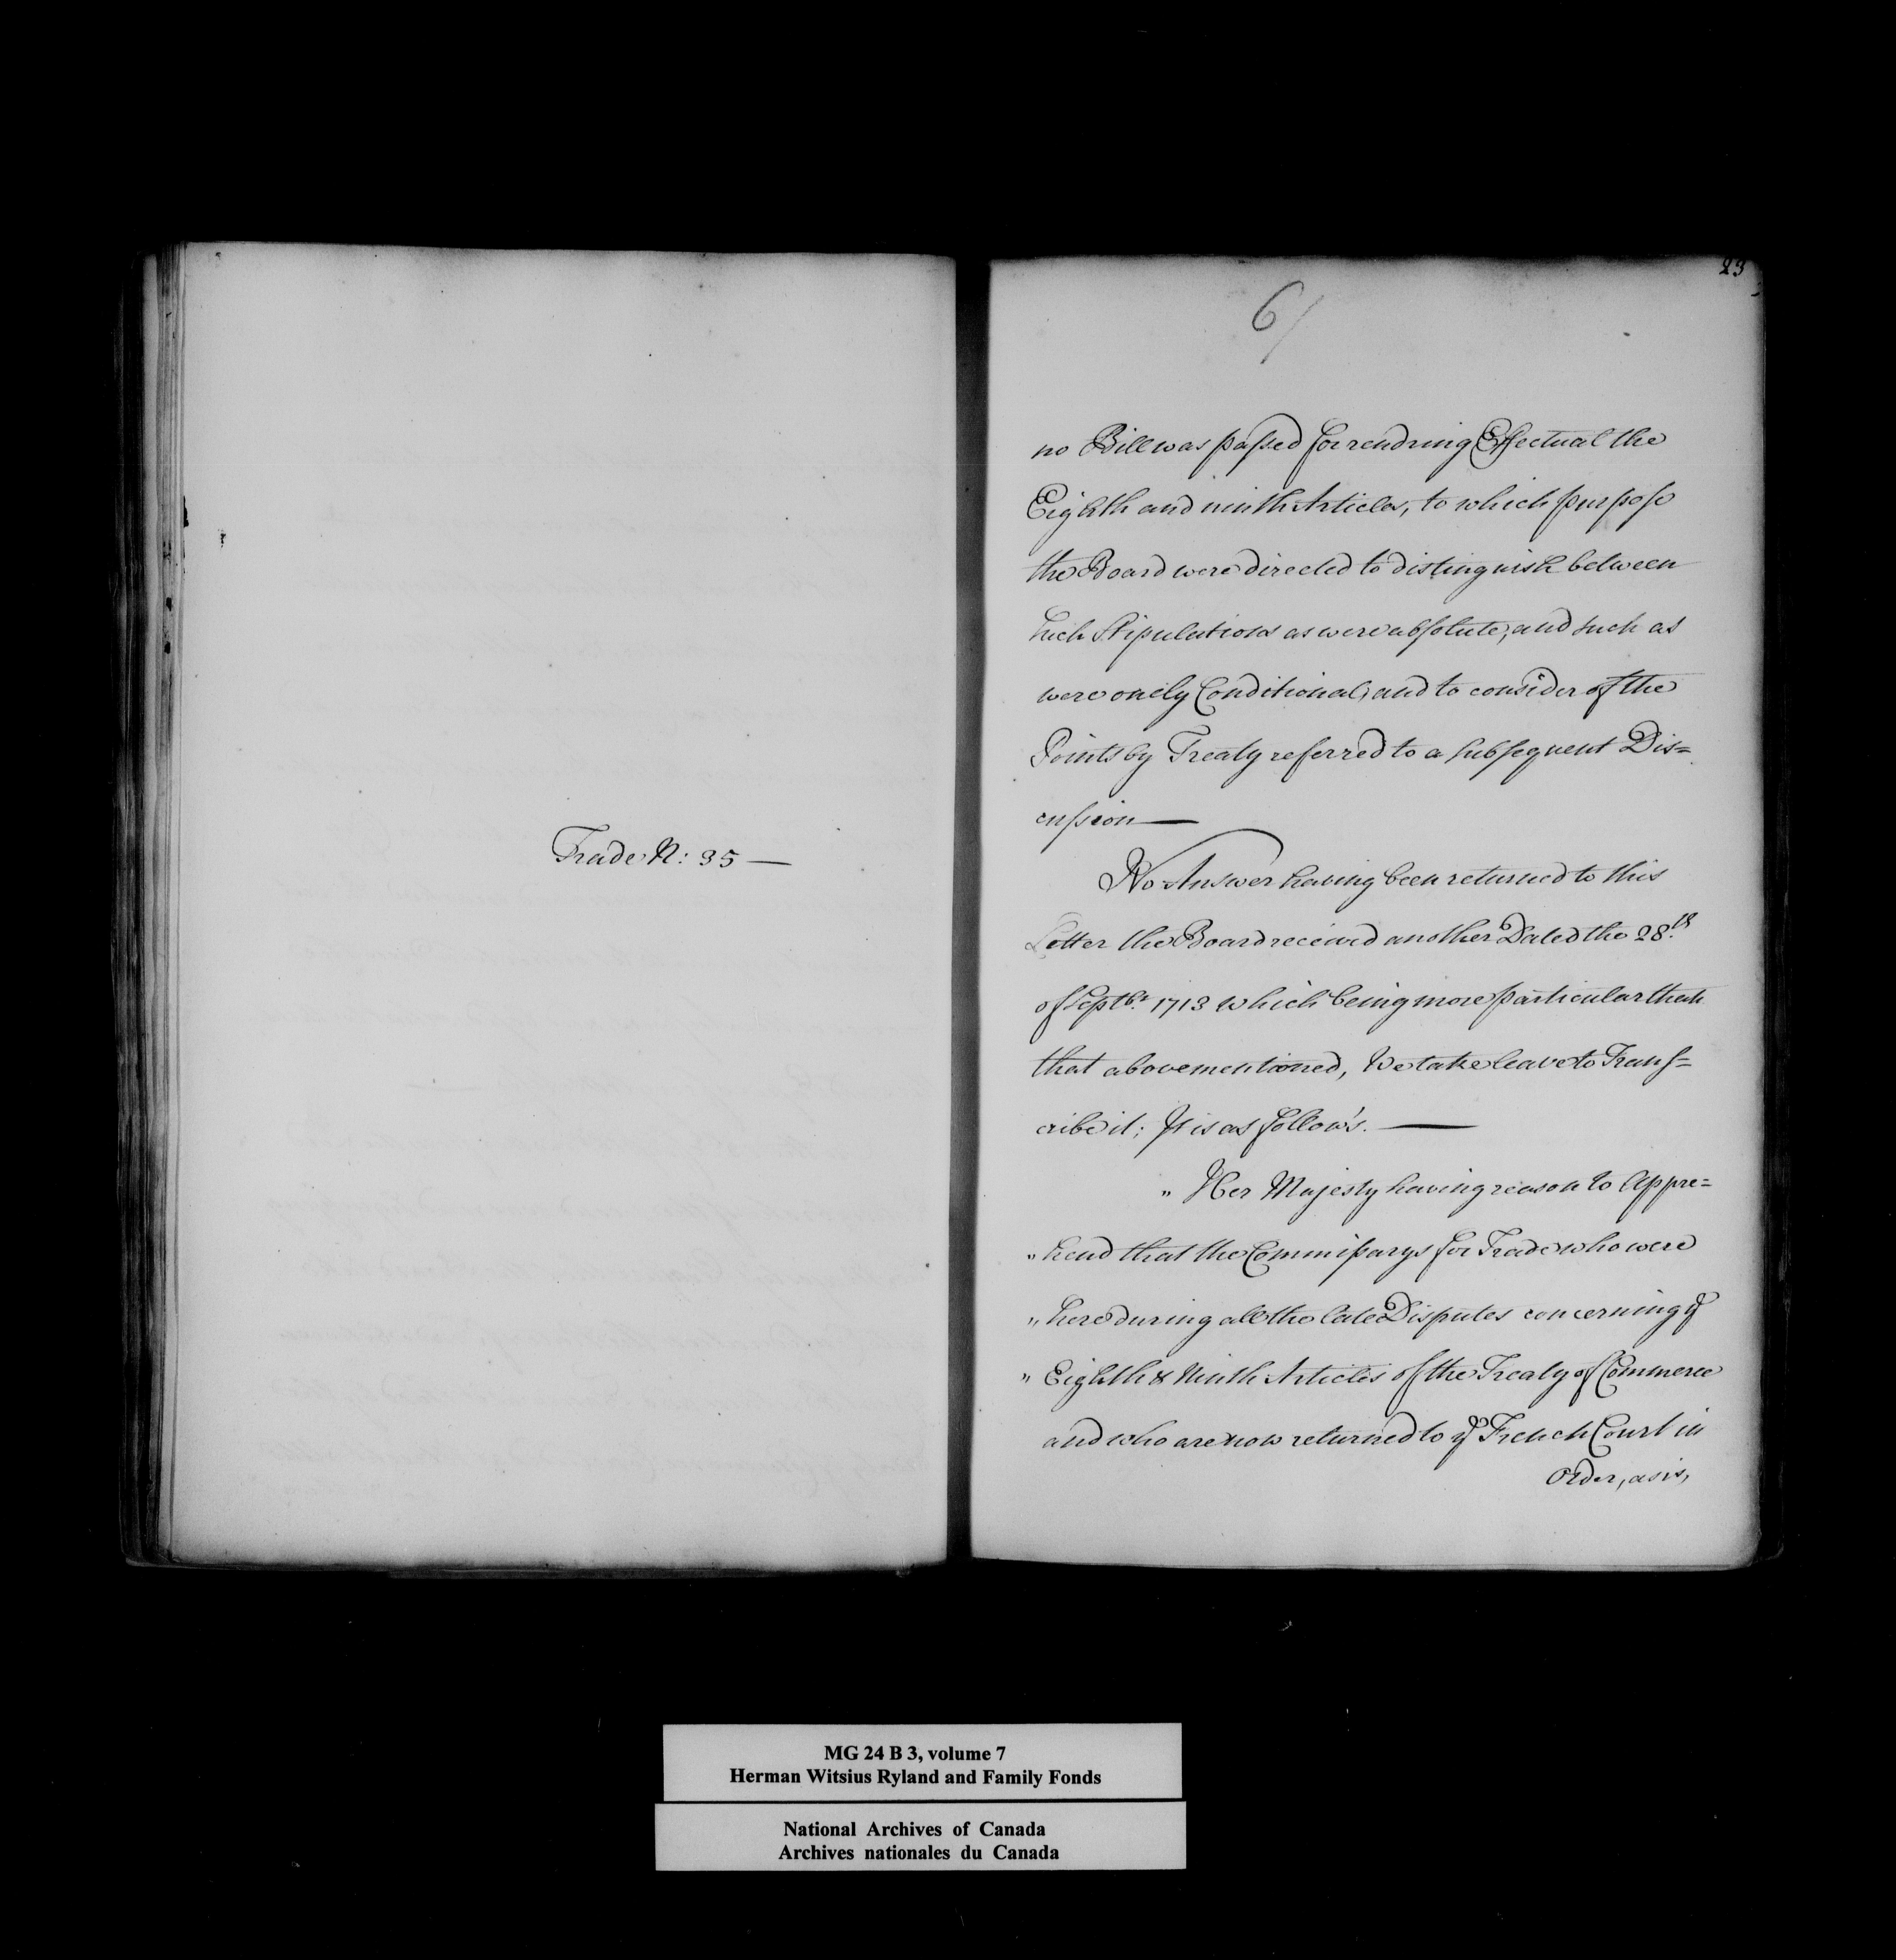 Trade N: 35 —
23
6/
no Bill was passed for rendring Effectual the
Eighth and ninth Articles, to which purpose
the Board were directed to distinguish between
such Stipulations as were absolute, and such as
were onely Conditional, and to consider of the
Points by Treaty referred to a subsequent Dis=
cussion —
No Answer having been returned to this
Letter the Board received another Dated the 28.th
of Septbr. 1713 which being more particular then
that abovementioned, We take leave to Trans=
cribe it; It is as follow's. —
" Her Majesty having reason to Appre=
" hend that the Commissarys for Trade who were
" here during all the late Disputes concerning ye
" Eighth & Ninth Articles of the Treaty of Commerce
and who are now returned to ye French Court in
Order, as is,
MG 24 B 3, volume 7
Herman Witsius Ryland and Family Fonds
National Archives of Canada
Archives nationales du Canada